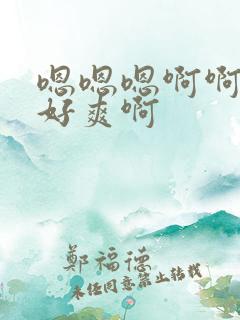 嗯嗯嗯啊啊
好爽啊
鄭福德
未经同意禁止转载